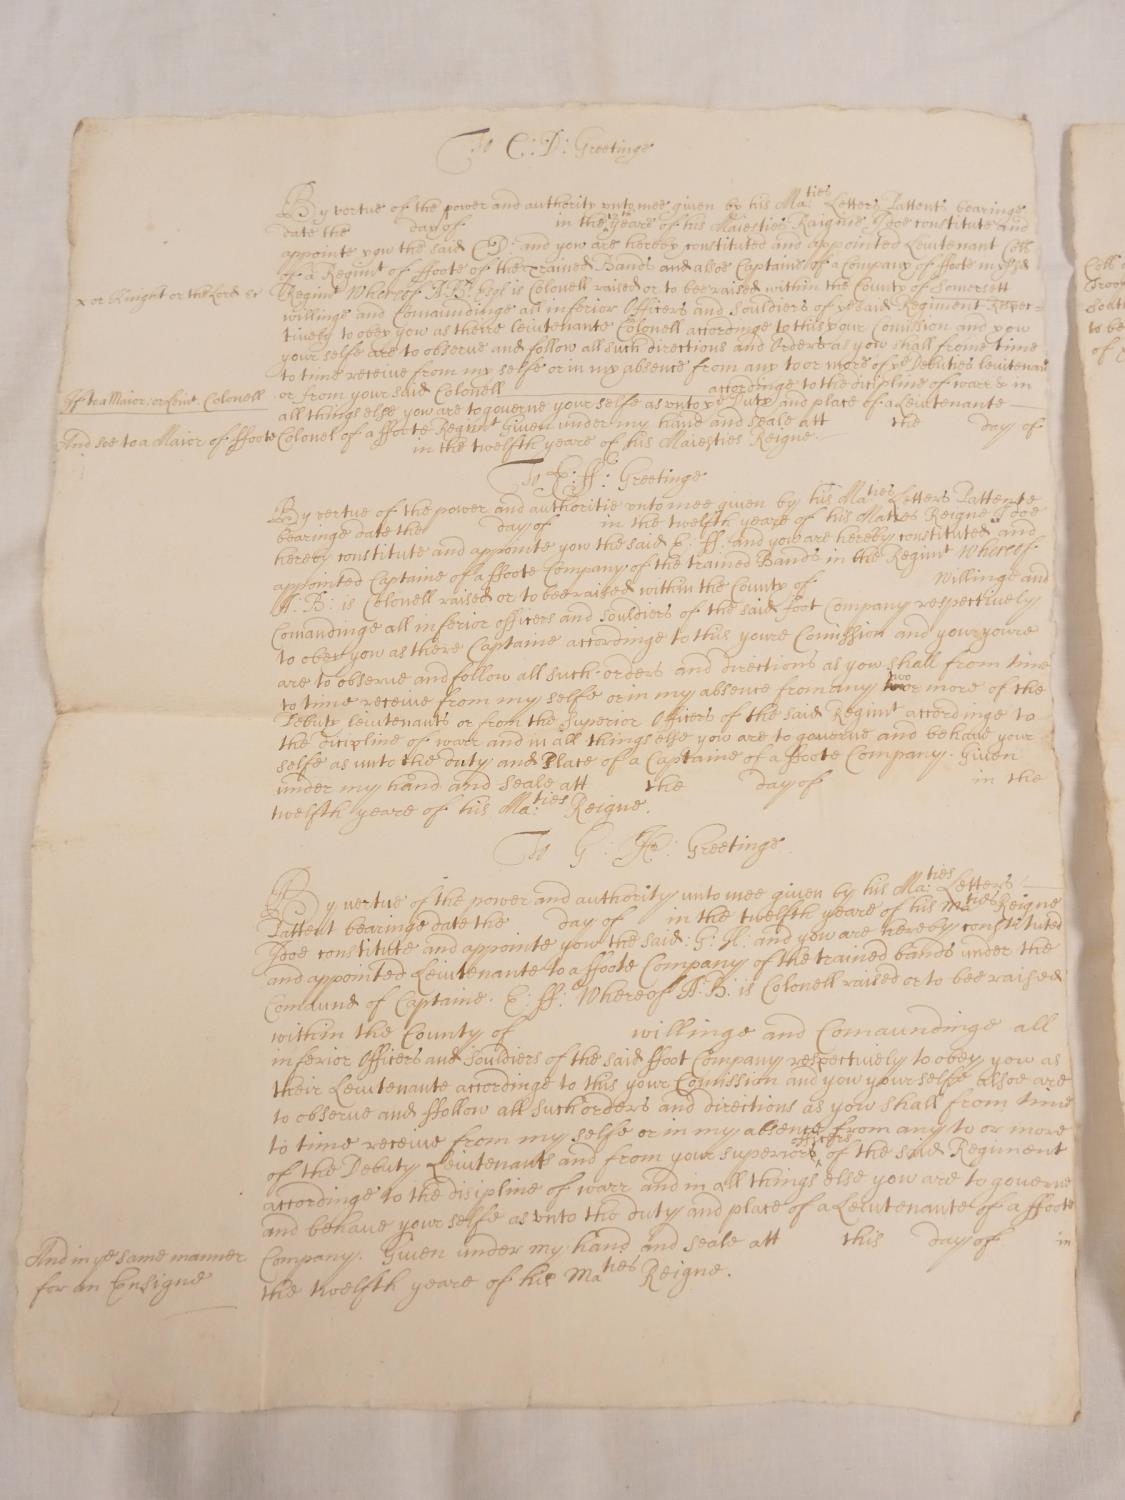 To C: D: Greetinge
By vertue of the power and authority vnto mee given by his Ma:ties Letters Pattents bearinge
date the day of in the yeare of his Maiesties Raigne I doe constitute and
appointe yow the said C: D: and yow are hereby constituted and appointed Leiutenant Coll
of a Regimt of ffoote of the Trained Bands and alsoe Captaine of a Company of ffoote in ye sd
x or Knight or the Lord &c
Regimt Whereof A: B: Esqr is Colonell raised or to bee raised within the County of Somersett
willinge and Comaundinge all inferior Officers and Souldiers of ye said Regiment Respec-
tively to obey yow as theire leiutenante Colonell accordinge to this your Comission and yow
your selfe are to observe and follow all such directions and Orders as yow shall frome time
to time receive from my selfe or in my absence from any two or more of ye Deputies leiutenan
If to a Maior: or Leiut. Colonell
or from your said Colonell accordinge to the dicipline of warr & in
all things else yow are to governe your selfe as vnto ye Duty and place of a Leiutenante
And soe to a Maior of ffoote
Colonel of a ffoote Regimt Given under my hand and seale att the day of
in the twelfth yeare of his Maiesties Reigne.
To E: ff: Greetinge
By vertue of the power and authoritie vnto mee given by his Ma:ties Letters Pattente
bearinge date the day of in the twelfth yeare of his Maties Reigne I doe
hereby constitute and appointe yow the said E: ff: and yow are hereby constituted and
appointed Captaine of a ffoote Company of the trained Bands in the Regimt Whereof
A: B: is Colonell raised or to bee raised within the County of Willinge and
Comandinge all inferior officers and souldiers of the said foot Company respectively
to obey yow as there Captaine accordinge to this youre Comission and yow youre
are to observe and follow all such orders and directions as yow shall from time
to time receive from my selfe or in my absence from any two or more of the
Deputy leiutenants or from the Superior Officers of the said Regimt accordinge to
the dicipline of warr and in all things else yow are to governe and behave your
selfe as unto the duty and Place of a Captaine of a ffoote Company. Given
under my hand and seale att the day of in the
twelfth yeare of his Ma:ties Reigne.
To G: H: Greetinge
By vertue of the power and authority unto mee given by his Ma:ties Letters
Pattent bearinge date the day of in the twelfth yeare of his Maties Reigne
I doe constitute and appointe yow the said: G: H: and yow are hereby constituted
and appointed Leiutenante to a ffoote Company of the trained bands under the
Comaund of Captaine. E: ff: Whereof A: B: is Colonell raised or to bee raised
within the County of willinge and Comaundinge all
inferior Officers and Souldiers of the said ffoot Company respectively to obey yow as
their Leiutenante accordinge to this your Comission and yow your selfe alsoe are
to observe and ffollow all such orders and directions as yow shall from time
to time receive from my selfe or in my absence from any to or more
of the Deputy Leiutenants and from your superiors officers of the said Regiment
accordinge to the discipline of warr and in all things else yow are to governe
and behave your selfe as vnto the duty and place of a Leiutenante of a ffoote
And in ye same manner
Company. Given under my hand and seale att this day of in
for an Ensigne
the twelfth yeare of his Maties Reigne.
Coll
to be
of